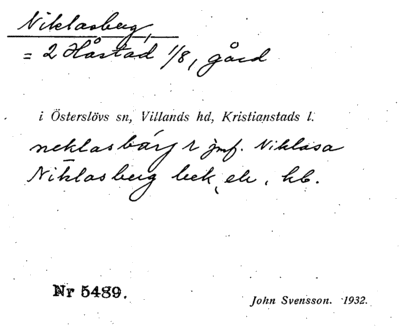 Niklasberg,
= 2 Håstad 1/8, gård
i Österslövs sn, Villands hd, Kristianstads l.
neklasbárj r jmf. Niklasa
Niklasberg bek, el. kb.
Nr 5489.
John Svensson. 1932.